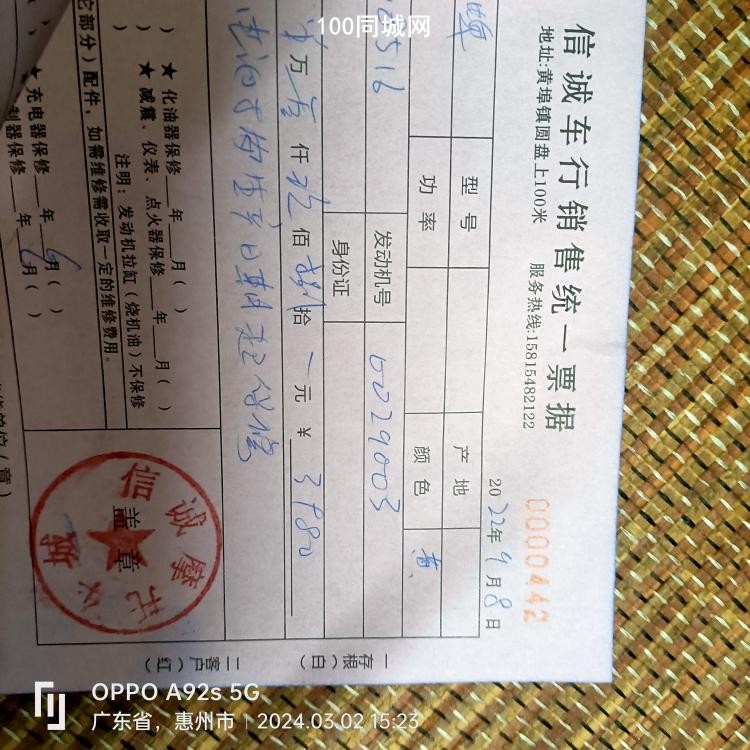 100同城网
信诚车行销售统一票据
0000442
地址:黄埠镇圆盘上100米 服务热线:15815482122
2022年9月8日
型号 产地
功率 颜色 黄
516 发动机号 0029003
身份证
万 仟 玖 佰 捌 拾 元 ¥ 3980
★ 化油器保修 年 月( )
★ 减震、仪表、点火器保修 年 月( )
注明:发动机拉缸(烧机油)不保修
它部分)配件,如需维修需收取一定的维修费用。
★ 充电器保修 年 6月( )
制器保修 年 月( )
信诚摩托
盖章
一存根(白)
二客户(红)
OPPO A92s 5G
广东省,惠州市 | 2024.03.02 15:23